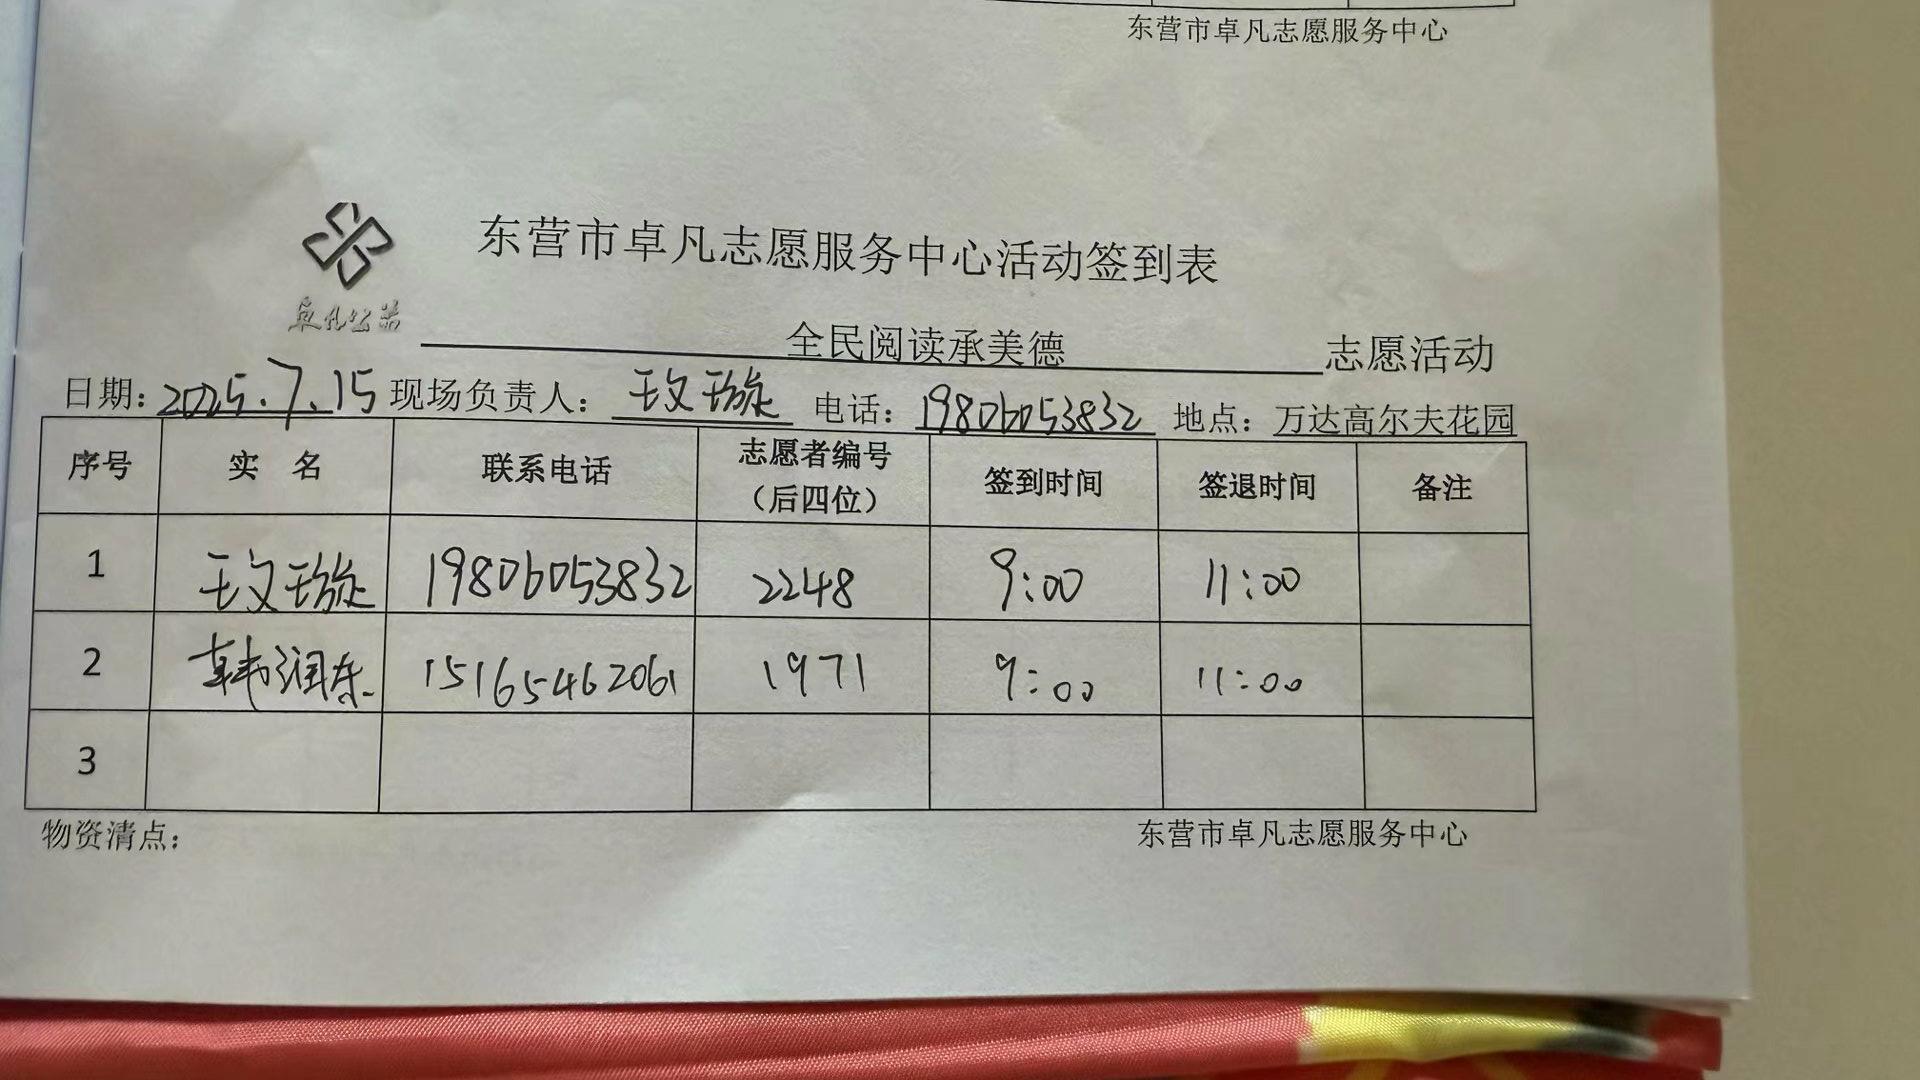 东营市卓凡志愿服务中心
东营市卓凡志愿服务中心活动签到表
卓凡公益
全民阅读承美德 志愿活动
日期：2025.7.15 现场负责人：王文璇 电话：19806053832 地点：万达高尔夫花园
序号 实 名 联系电话 志愿者编号（后四位） 签到时间 签退时间 备注
1 王文璇 19806053832 2248 9:00 11:00
2 韩润东 15165462061 1971 9:00 11:00
3
物资清点： 东营市卓凡志愿服务中心